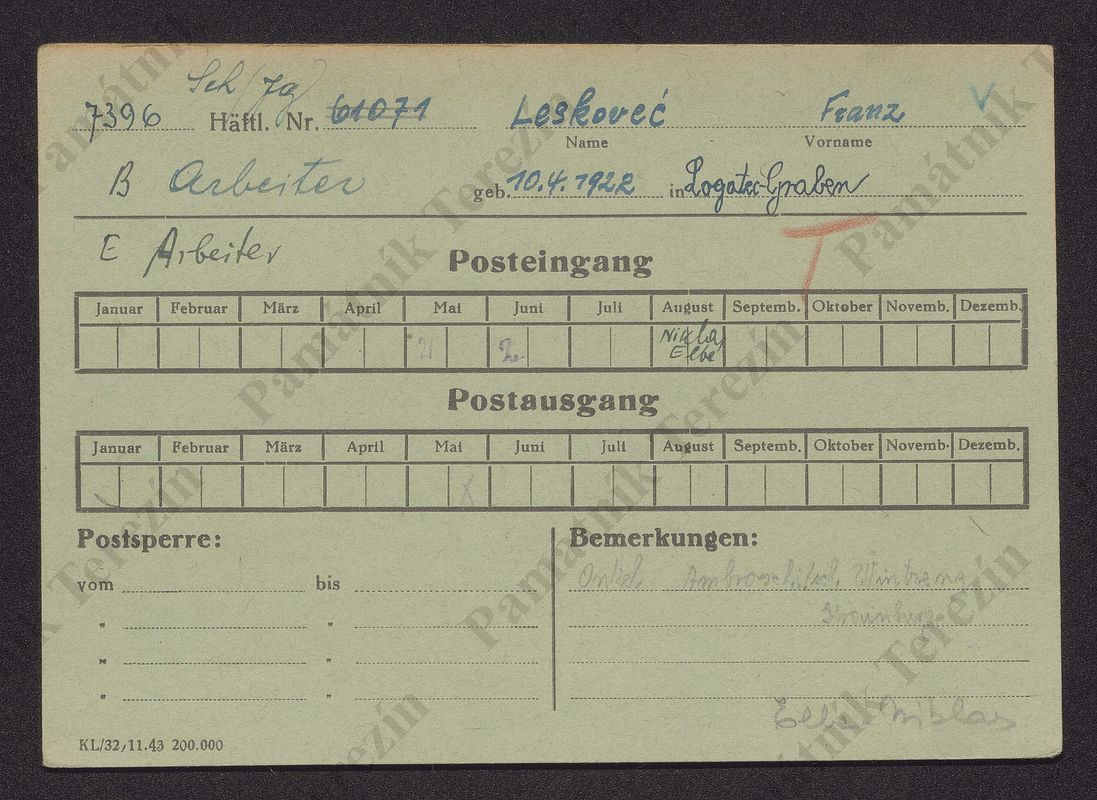 Sch/Jg
7396 Häftl. Nr. 61071 Leskoveć Franz
Name Vorname
B Arbeiter geb. 10.4.1922 in Logatec-Graben
E Arbeiter
T
Posteingang
Januar Februar März April Mai Juni Juli August Septemb. Oktober Novemb. Dezemb.
21 2. Nikla
Elbe
Postausgang
Januar Februar März April Mai Juni Juli August Septemb. Oktober Novemb. Dezemb.
x
Postsperre: Bemerkungen:
vom bis
Onkel
" "
" "
" "
KL/32/11.43 200.000
Památník Terezín